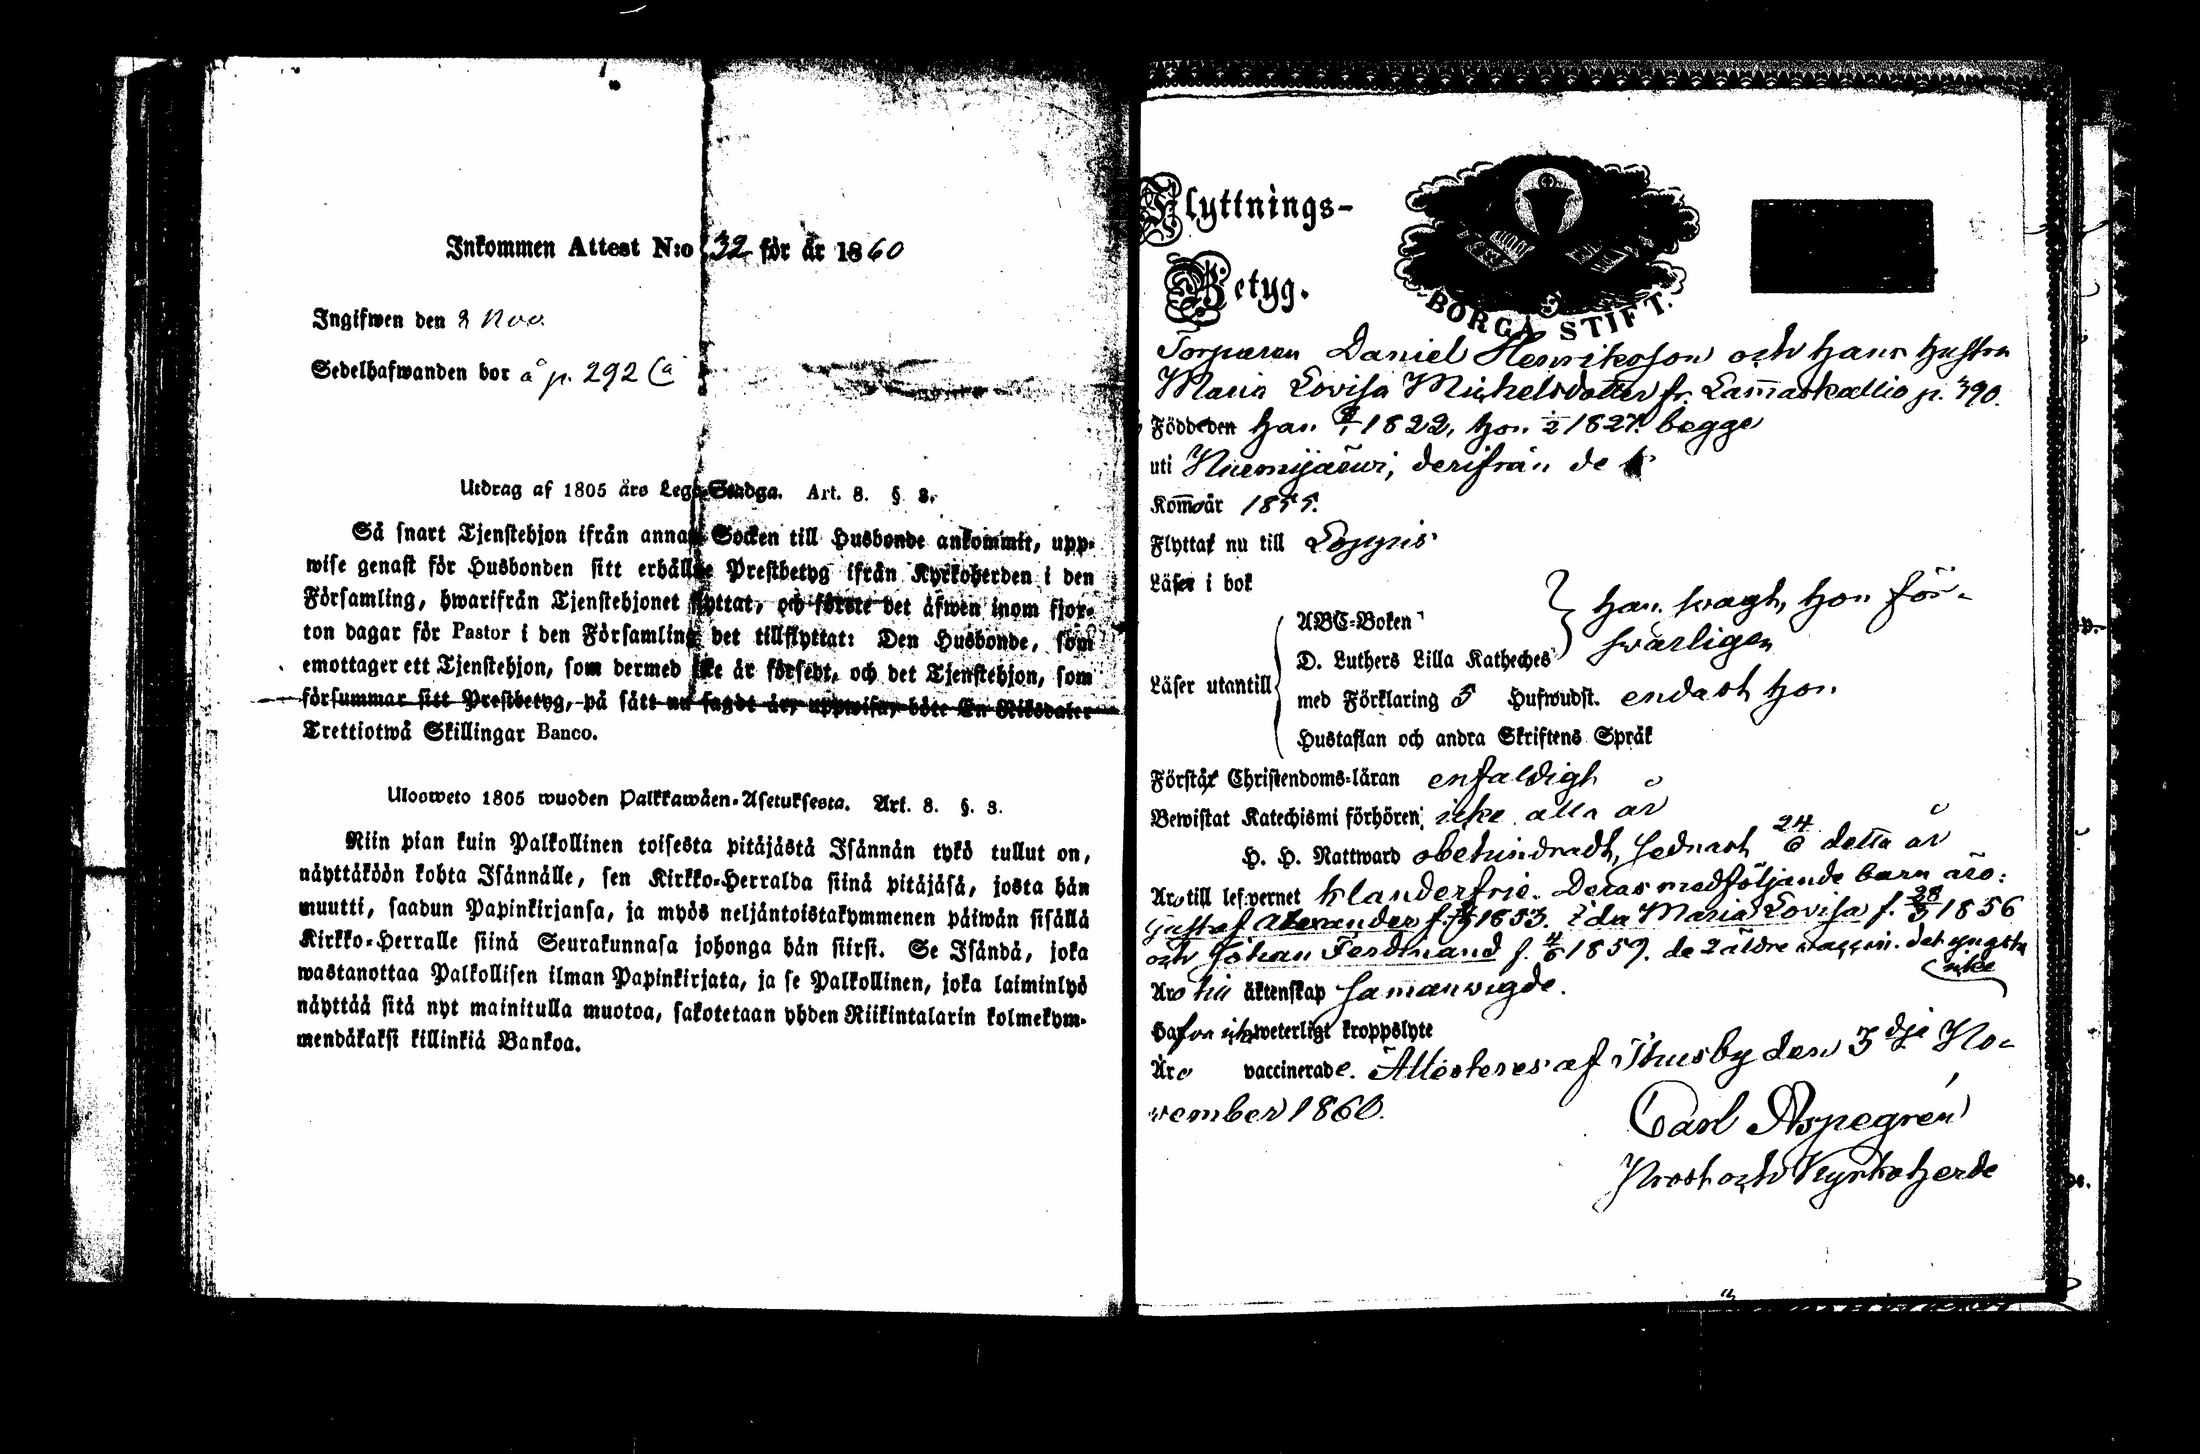 Inkommen Attest N:o 32 för år 1860
Ingifwen den 8 Nov.
Sedelhafwanden bor å p. 292 (a
Utdrag af 1805 års Lego-Stadga. Art. 8. § 3.
Så snart Tjenstehjon ifrån annan Socken till Husbonde ankommit, upp-
wise genast för Husbonden sitt erhållne Prestbetyg ifrån Kyrkoherden i den
Församling, hwarifrån Tjenstehjonet flyttat, och förete det äfwen inom fjor-
ton dagar för Pastor i den Församling det tillflyttat: Den Husbonde, som
emottager ett Tjenstehjon, som dermed icke är försedt, och det Tjenstehjon, som
försummar sitt Prestbetyg, på sätt nu sagdt är, uppwisa, böte En Riksdaler
Trettiotwå Skillingar Banco.
Ulosweto 1805 wuoden Palkkawäen-Asetuksesta. Art. 8. §. 3.
Niin pian kuin Palkollinen toisesta pitäjästä Isännän tykö tullut on,
näyttäköön kohta Isännälle, sen Kirkko-Herralda siinä pitäjäsä, josta hän
muutti, saadun Papinkirjansa, ja myös neljäntoistakymmenen päiwän sisällä
Kirkko-Herralle siinä Seurakunnasa johonga hän siirsi. Se Isändä, joka
wastanottaa Palkollisen ilman Papinkirjata, ja se Palkollinen, joka laiminlyö
näyttää sitä nyt mainitulla muotoa, sakotetaan yhden Riikintalarin kolmekym-
mendäkaksi killinkiä Bankoa.
Flyttnings-
Betyg.
BORGÅ STIFT.
Torparen Daniel Henriksson och hans hustru
Maria Lovisa Michelsdotter fr. Lam̅askallio p. 390.
Född den han 1822, hon 1827. begge
uti Nurmijärwi, derifrån de
Kom̅o år 1855.
Flyttat nu till Loppis
Läser i bok
ABC-Boken
D. Luthers Lilla Katheches
han swagt, hon för-
swarligen
Läser utantill
med Förklaring 5 Hufwudst. endast hon
Hustaflan och andra Skriftens Språk
Förstår Christendoms-läran enfaldigt
Bewistat Katechismi förhören icke alla år
H. H. Nattward obehindradt, sednast 24/6 detta år
Äro till lefvernet klanderfrie. Deras medföljande barn äro:
Gustaf Alexander f. 1853. Ida Maria Lovisa f. 28/3 1856
och Johan Ferdinand f. 4/6 1859. de 2 äldre vaccin. det yngsta
icke
Äro till äktenskap sam̅anvigde.
Hafva icke weterligt kroppslyte
Äro vaccinerade. Attesteres af Thusby den 3dje No-
vember 1860.
Carl Aspegren
Prost och Kyrkoherde